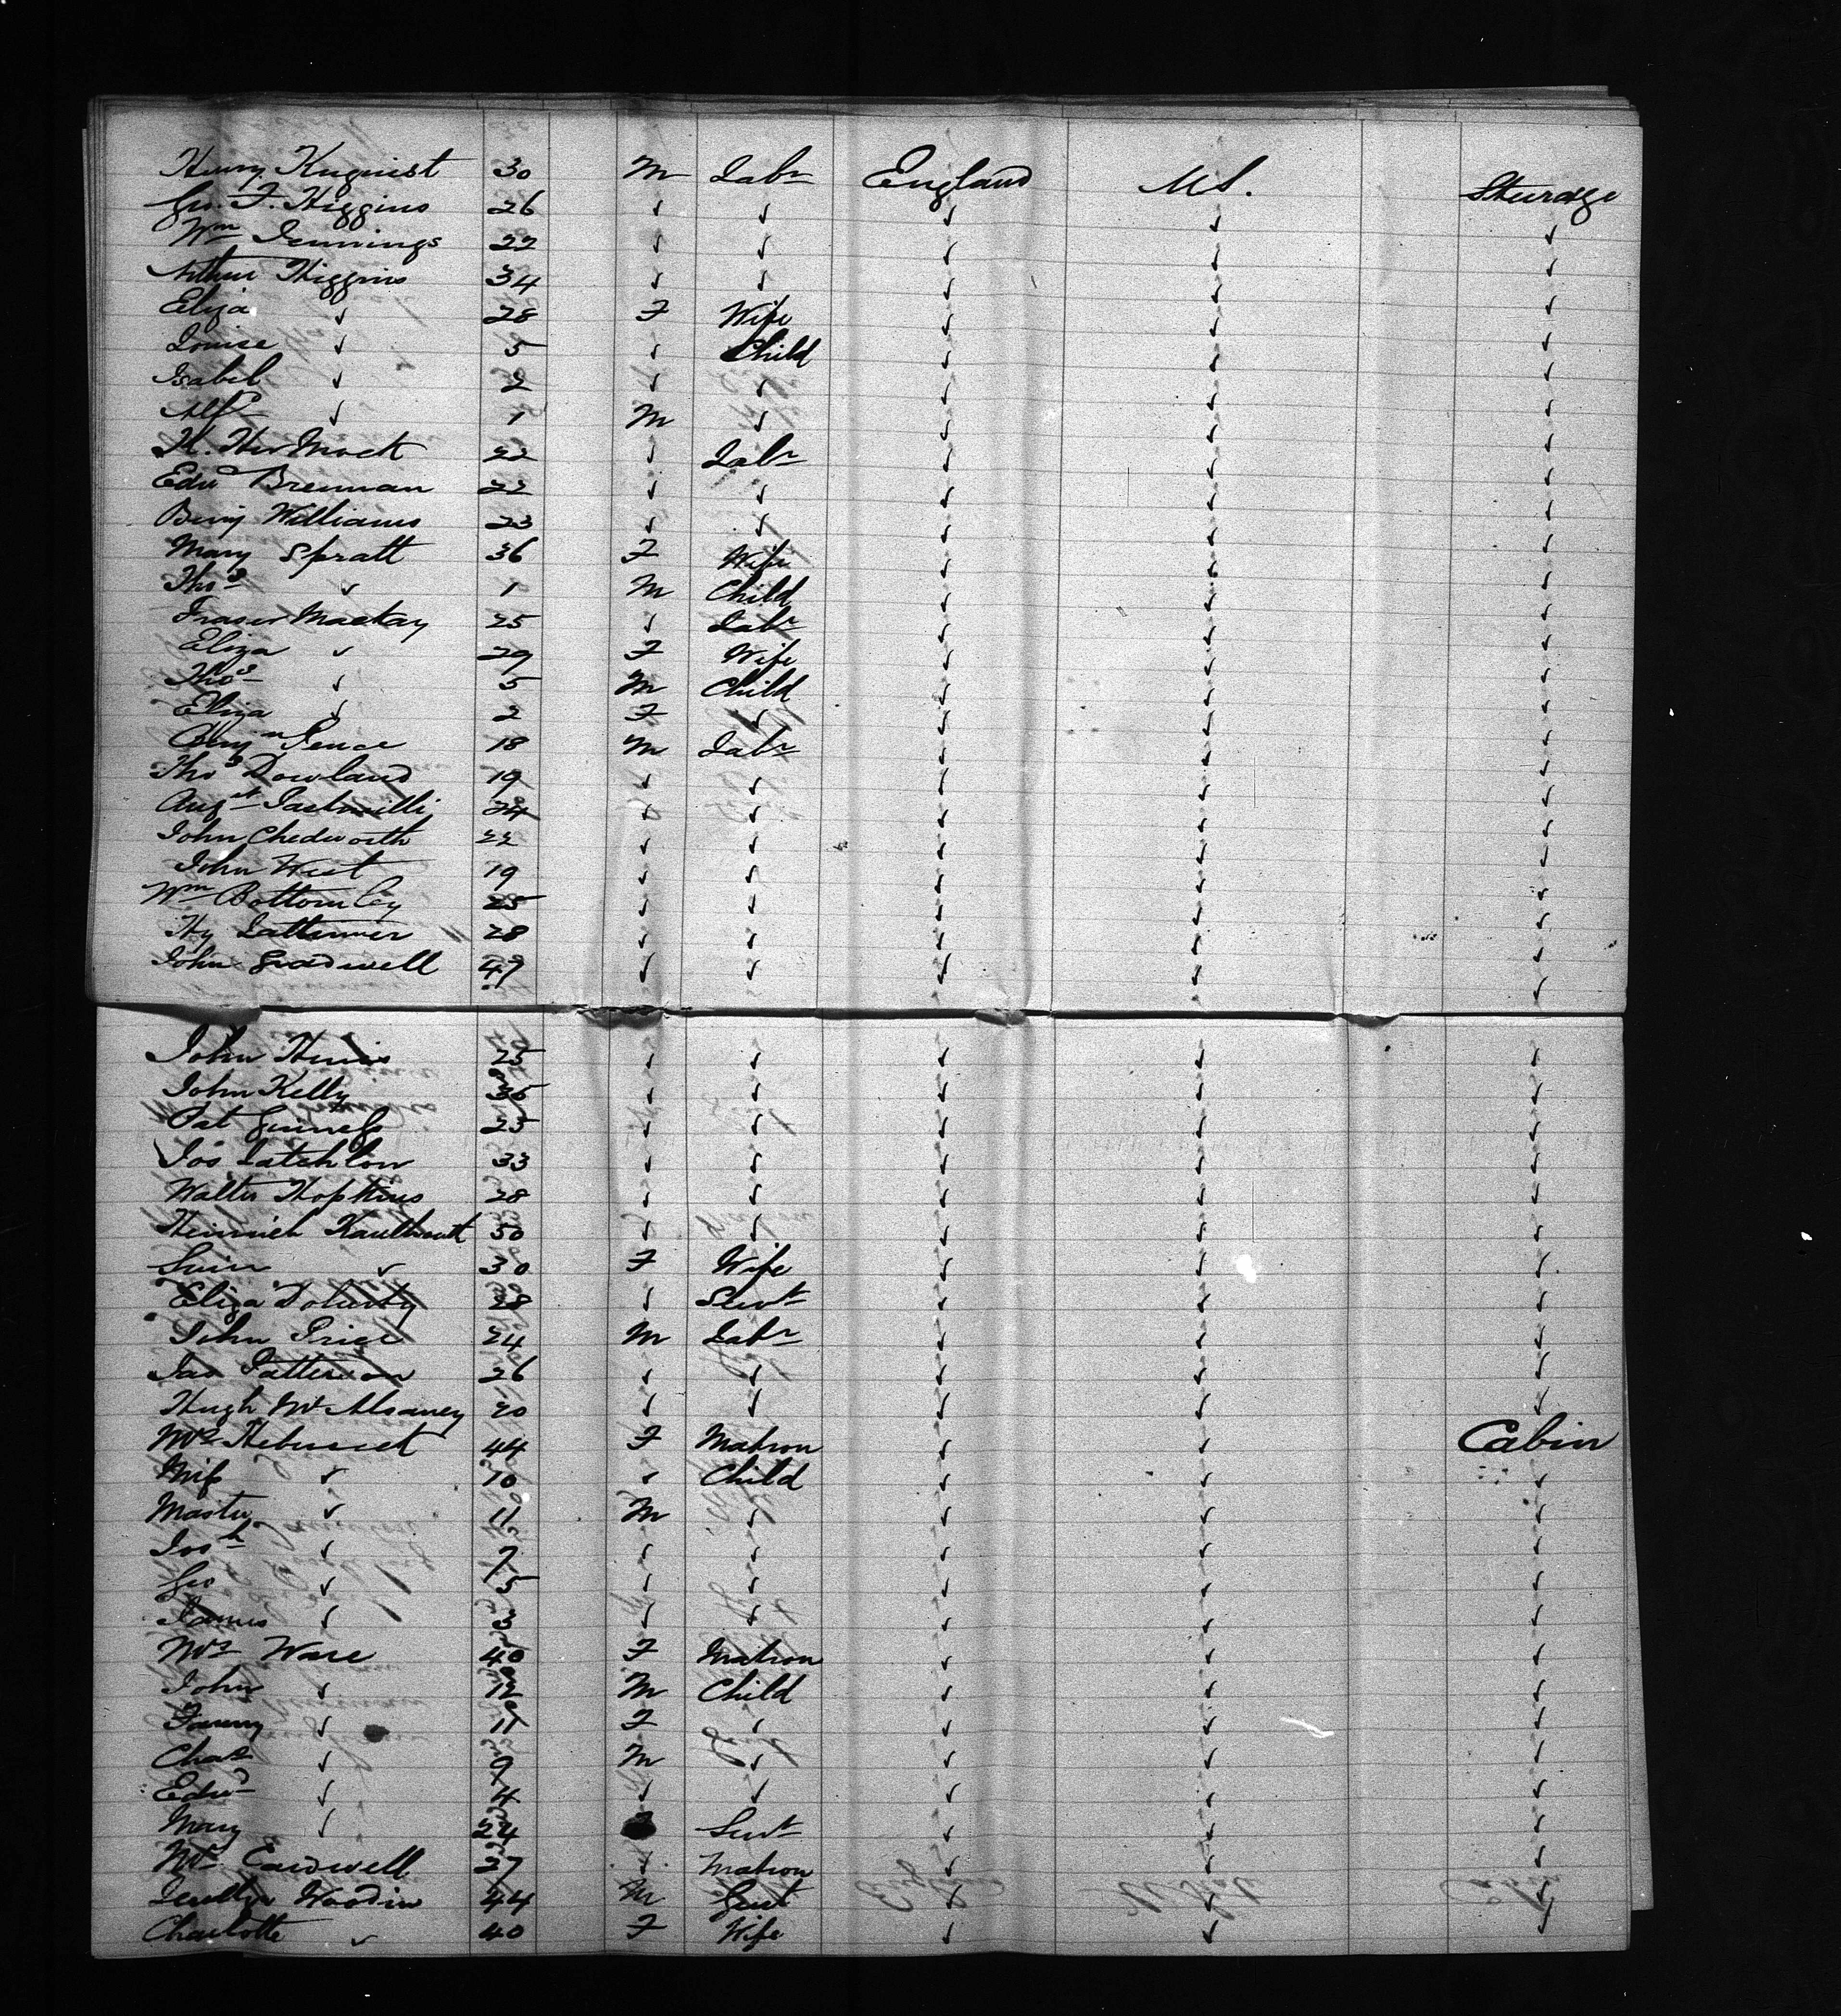 Henry Kuquist 30 M Labr England U.S. Steerage
Geo. F. Higgins 26 ✓ ✓ ✓ ✓ ✓
Wm Jennings 22 ✓ ✓ ✓ ✓ ✓
Arthur Higgins 34 ✓ ✓ ✓ ✓ ✓
Eliza ✓ 28 F Wife ✓ ✓ ✓
Louise ✓ 5 ✓ Child ✓ ✓ ✓
Isabel ✓ 2 ✓ ✓ ✓ ✓ ✓
Alfd ✓ 1 M ✓ ✓ ✓ ✓
H. 22 ✓ Labr ✓ ✓ ✓
Edwd Brennan 22 ✓ ✓ ✓ ✓ ✓
Benj Williams 23 ✓ ✓ ✓ ✓ ✓
Mary Spratt 36 F Wife ✓ ✓ ✓
Thos ✓ 1 M Child ✓ ✓ ✓
Fraser Mackay 25 ✓ Labr ✓ ✓ ✓
Eliza ✓ 29 F Wife ✓ ✓ ✓
Thos ✓ 5 M Child ✓ ✓ ✓
Eliza ✓ 2 F ✓ ✓ ✓ ✓
Benjn Pence 18 M Labr ✓ ✓ ✓
Thos Dowland 19 ✓ ✓ ✓ ✓ ✓
Augst 24 ✓ ✓ ✓ ✓ ✓
John Chedworth 22 ✓ ✓ ✓ ✓ ✓
John West 19 ✓ ✓ ✓ ✓ ✓
Wm Bottomley 25 ✓ ✓ ✓ ✓ ✓
Hy Lattimer 28 ✓ ✓ ✓ ✓ ✓
John Gradwell 47 ✓ ✓ ✓ ✓ ✓
John 25 ✓ ✓ ✓ ✓ ✓
John Kelly 36 ✓ ✓ ✓ ✓ ✓
Pat Guiness 25 ✓ ✓ ✓ ✓ ✓
Jos Latchlow 33 ✓ ✓ ✓ ✓ ✓
Walter Hopkins 28 ✓ ✓ ✓ ✓ ✓
Heinrich 50 ✓ ✓ ✓ ✓ ✓
✓ 30 F Wife ✓ ✓ ✓
Eliza Doherty 28 ✓ Servt ✓ ✓ ✓
John Price 24 M Labr ✓ ✓ ✓
Jas Patterson 26 ✓ ✓ ✓ ✓ ✓
Hugh McAlsaney 20 ✓ ✓ ✓ ✓ ✓
Mrs 44 F Matron ✓ ✓ Cabin
Miss ✓ 10 ✓ Child ✓ ✓ ✓
Master ✓ 11 M ✓ ✓ ✓ ✓
Josh ✓ 7 ✓ ✓ ✓ ✓ ✓
Geo ✓ 5 ✓ ✓ ✓ ✓ ✓
James ✓ 3 ✓ ✓ ✓ ✓ ✓
Mrs Ware 40 F Matron ✓ ✓ ✓
John ✓ 12 M Child ✓ ✓ ✓
Fanny ✓ 11 F ✓ ✓ ✓ ✓
Chas ✓ 9 M ✓ ✓ ✓ ✓
Edwd ✓ 4 ✓ ✓ ✓ ✓ ✓
Mary ✓ 24 F Servt ✓ ✓ ✓
Mrs Cardwell 27 ✓ Matron ✓ ✓ ✓
Woodin 44 M Gent ✓ ✓ ✓
Charlotte ✓ 40 F Wife ✓ ✓ ✓